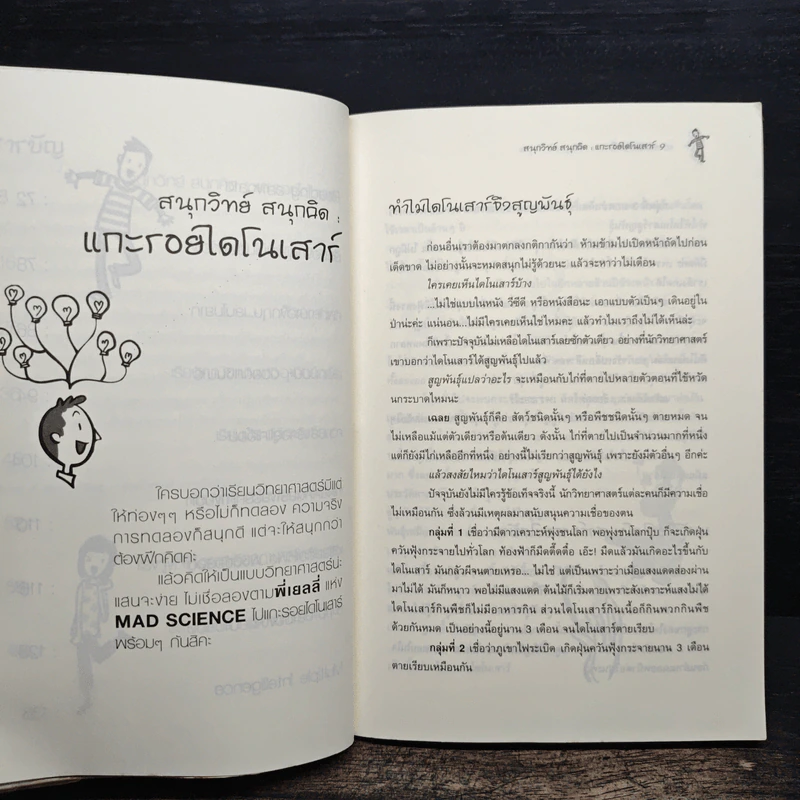 สนุกวิทย์ สนุกคิด :
แกะรอยไดโนเสาร์
ใครบอกว่าเรียนวิทยาศาสตร์มีแต่
ให้ท่องๆๆ หรือไม่ก็ทดลอง ความจริง
การทดลองก็สนุกดี แต่จะให้สนุกกว่า
ต้องฝึกคิดค่ะ
แล้วคิดให้เป็นแบบวิทยาศาสตร์น่ะ
แสนจะง่าย ไม่เชื่อลองตามพี่เยลลี่ แห่ง
MAD SCIENCE ไปแกะรอยไดโนเสาร์
พร้อมๆ กันสิคะ
สนุกวิทย์ สนุกคิด : แกะรอยไดโนเสาร์ 9
ทำไมไดโนเสาร์จึงสูญพันธุ์
ก่อนอื่นเราต้องมาตกลงกติกากันว่า ห้ามข้ามไปเปิดหน้าถัดไปก่อน
เด็ดขาด ไม่อย่างนั้นจะหมดสนุกไม่รู้ด้วยนะ แล้วจะหาว่าไม่เตือน
ใครเคยเห็นไดโนเสาร์บ้าง
...ไม่ใช่แบบในหนัง วีซีดี หรือหนังสือนะ เอาแบบตัวเป็นๆ เดินอยู่ใน
ป่าน่ะค่ะ แน่นอน...ไม่มีใครเคยเห็นใช่ไหมคะ แล้วทำไมเราถึงไม่ได้เห็นล่ะ
ก็เพราะปัจจุบันไม่เหลือไดโนเสาร์เลยซักตัวเดียว อย่างที่นักวิทยาศาสตร์
เขาบอกว่าไดโนเสาร์ได้สูญพันธุ์ไปแล้ว
สูญพันธุ์แปลว่าอะไร จะเหมือนกับไก่ที่ตายไปหลายตัวตอนที่ไข้หวัด
นกระบาดไหมนะ
เฉลย สูญพันธุ์ก็คือ สัตว์ชนิดนั้นๆ หรือพืชชนิดนั้นๆ ตายหมด จน
ไม่เหลือแม้แต่ตัวเดียวหรือต้นเดียว ดังนั้น ไก่ที่ตายไปเป็นจำนวนมากที่หนึ่ง
แต่ก็ยังมีไก่เหลืออีกที่หนึ่ง อย่างนี้ไม่เรียกว่าสูญพันธุ์ เพราะยังมีตัวอื่นๆ อีกค่ะ
แล้วสงสัยไหมว่าไดโนเสาร์สูญพันธุ์ได้ยังไง
ปัจจุบันยังไม่มีใครรู้ข้อเท็จจริงนี้ นักวิทยาศาสตร์แต่ละคนก็มีความเชื่อ
ไม่เหมือนกัน ซึ่งล้วนมีเหตุผลมาสนับสนุนความเชื่อของตน
กลุ่มที่ 1 เชื่อว่ามีดาวเคราะห์พุ่งชนโลก พอพุ่งชนโลกปุ๊บ ก็จะเกิดฝุ่น
ควันฟุ้งกระจายไปทั่วโลก ท้องฟ้าก็มืดตึ๊ดตื๋อ เอ๊ะ! มืดแล้วมันเกิดอะไรขึ้นกับ
ไดโนเสาร์ มันกลัวผีจนตายเหรอ... ไม่ใช่ แต่เป็นเพราะว่าเมื่อแสงแดดส่องผ่าน
มาไม่ได้ มันก็หนาว พอไม่มีแสงแดด ต้นไม้ก็เริ่มตายเพราะสังเคราะห์แสงไม่ได้
ไดโนเสาร์กินพืชก็ไม่มีอาหารกิน ส่วนไดโนเสาร์กินเนื้อก็กินพวกกินพืช
ด้วยกันหมด เป็นอย่างนี้อยู่นาน 3 เดือน จนไดโนเสาร์ตายเรียบ
กลุ่มที่ 2 เชื่อว่าภูเขาไฟระเบิด เกิดฝุ่นควันฟุ้งกระจายนาน 3 เดือน
ตายเรียบเหมือนกัน